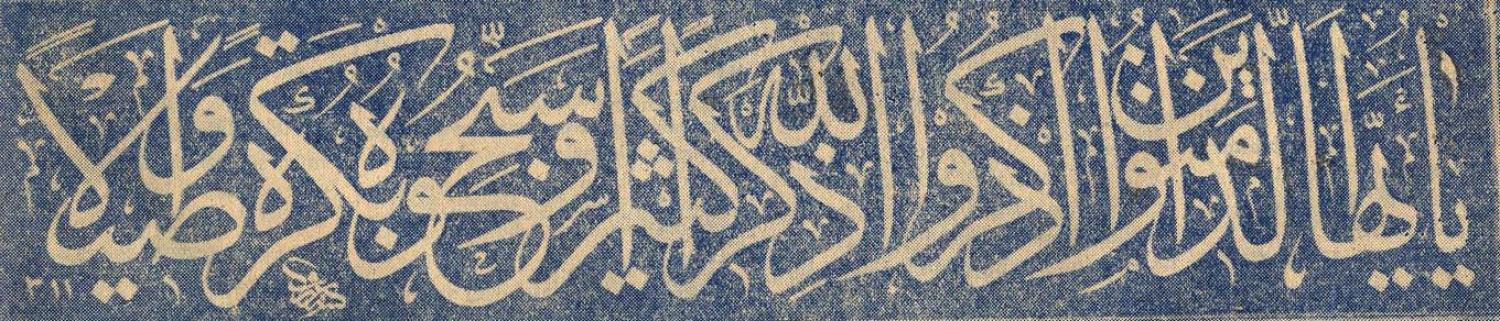 يَا أَيُّهَا الَّذِينَ آمَنُوا اذْكُرُوا اللَّهَ ذِكْرًا كَثِيرًا وَسَبِّحُوهُ بُكْرَةً وَأَصِيلًا